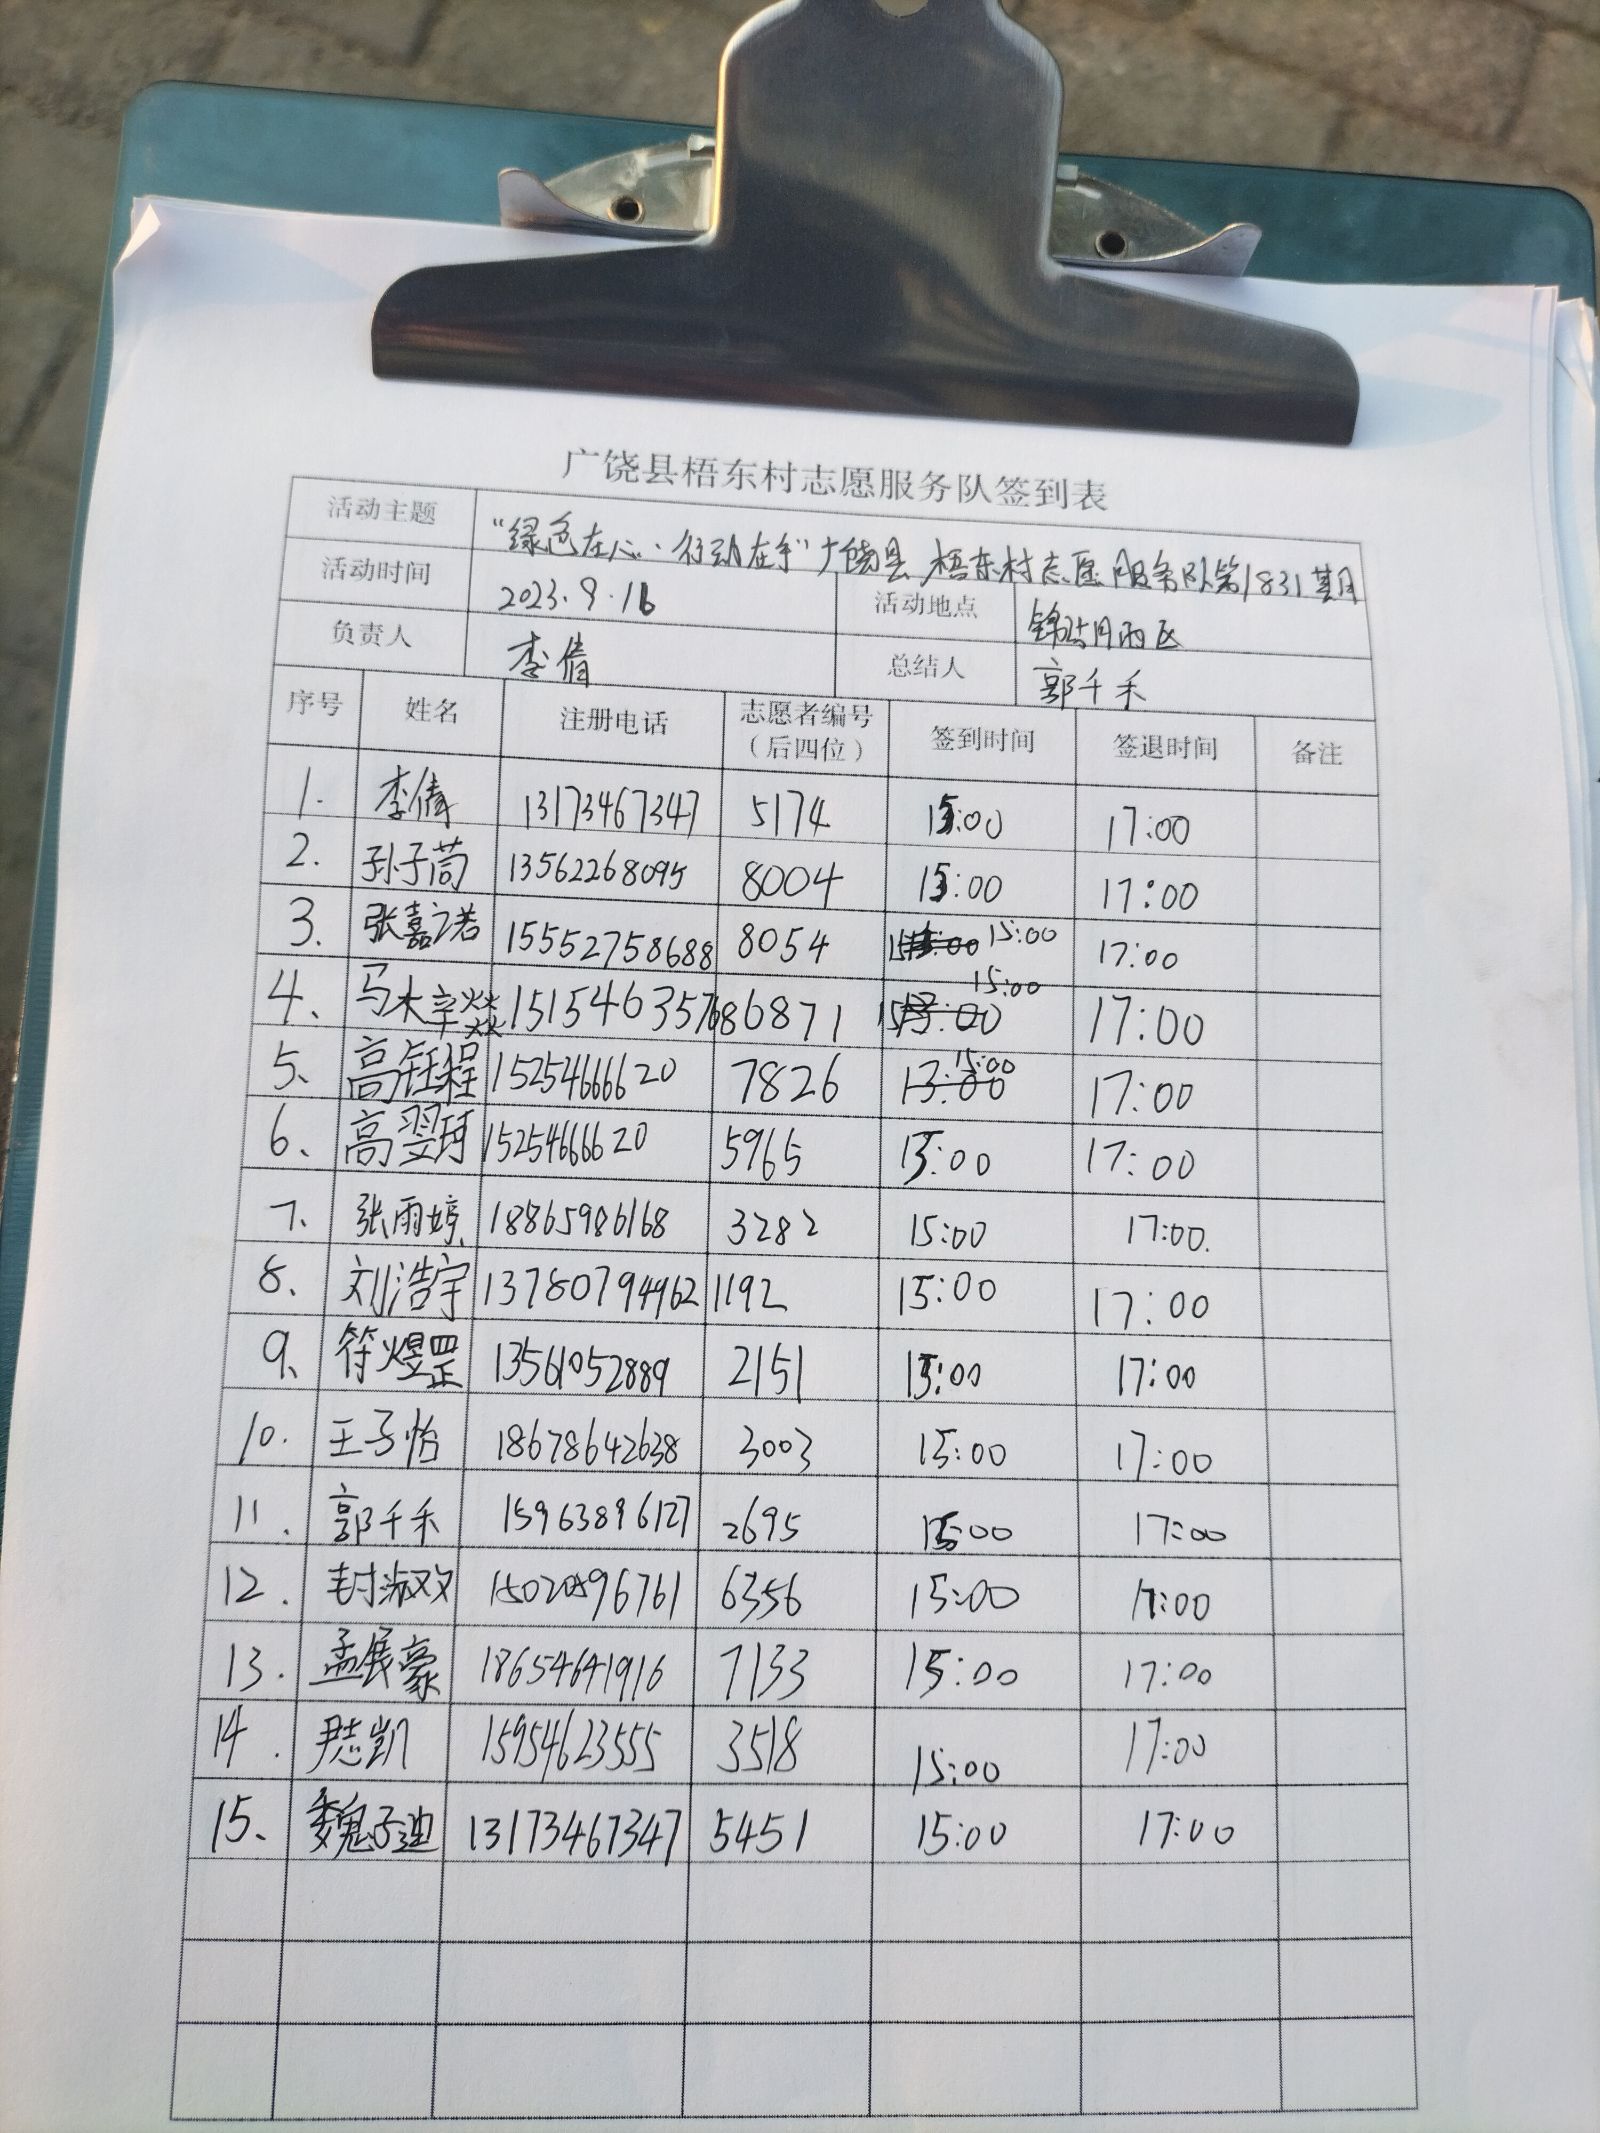 广饶县梧东村志愿服务队签到表
活动主题 “绿色在心·行动在手”广饶县梧东村志愿服务队第1831期
活动时间 2023.9.16 活动地点 锦湖月西区
负责人 李倩 总结人 郭千禾
序号 姓名 注册电话 志愿者编号（后四位） 签到时间 签退时间 备注
1. 李倩 13173467347 5174 15:00 17:00
2. 孙子茼 13562268095 8004 15:00 17:00
3. 张嘉诺 15552758688 8054 15:00 17:00
4、 马木辛燚 15154635768 6871 15:00 17:00
5、 高钰程 15254666620 7826 13:00 15:00 17:00
6、 高翌珂 15254666620 5965 15:00 17:00
7、 张雨婷 18865986168 3282 15:00 17:00.
8、 刘浩宇 13780794962 1192 15:00 17:00
9、 符煜罡 13561052889 2151 15:00 17:00
10. 王子怡 18678642638 3003 15:00 17:00
11. 郭千禾 15963896127 2695 15:00 17:00
12. 封淑 6356 15:00 17:00
13. 孟展豪 18654641916 7133 15:00 17:00
14. 尹志凯 15954623555 3518 15:00 17:00
15、 魏子迪 13173467347 5451 15:00 17:00